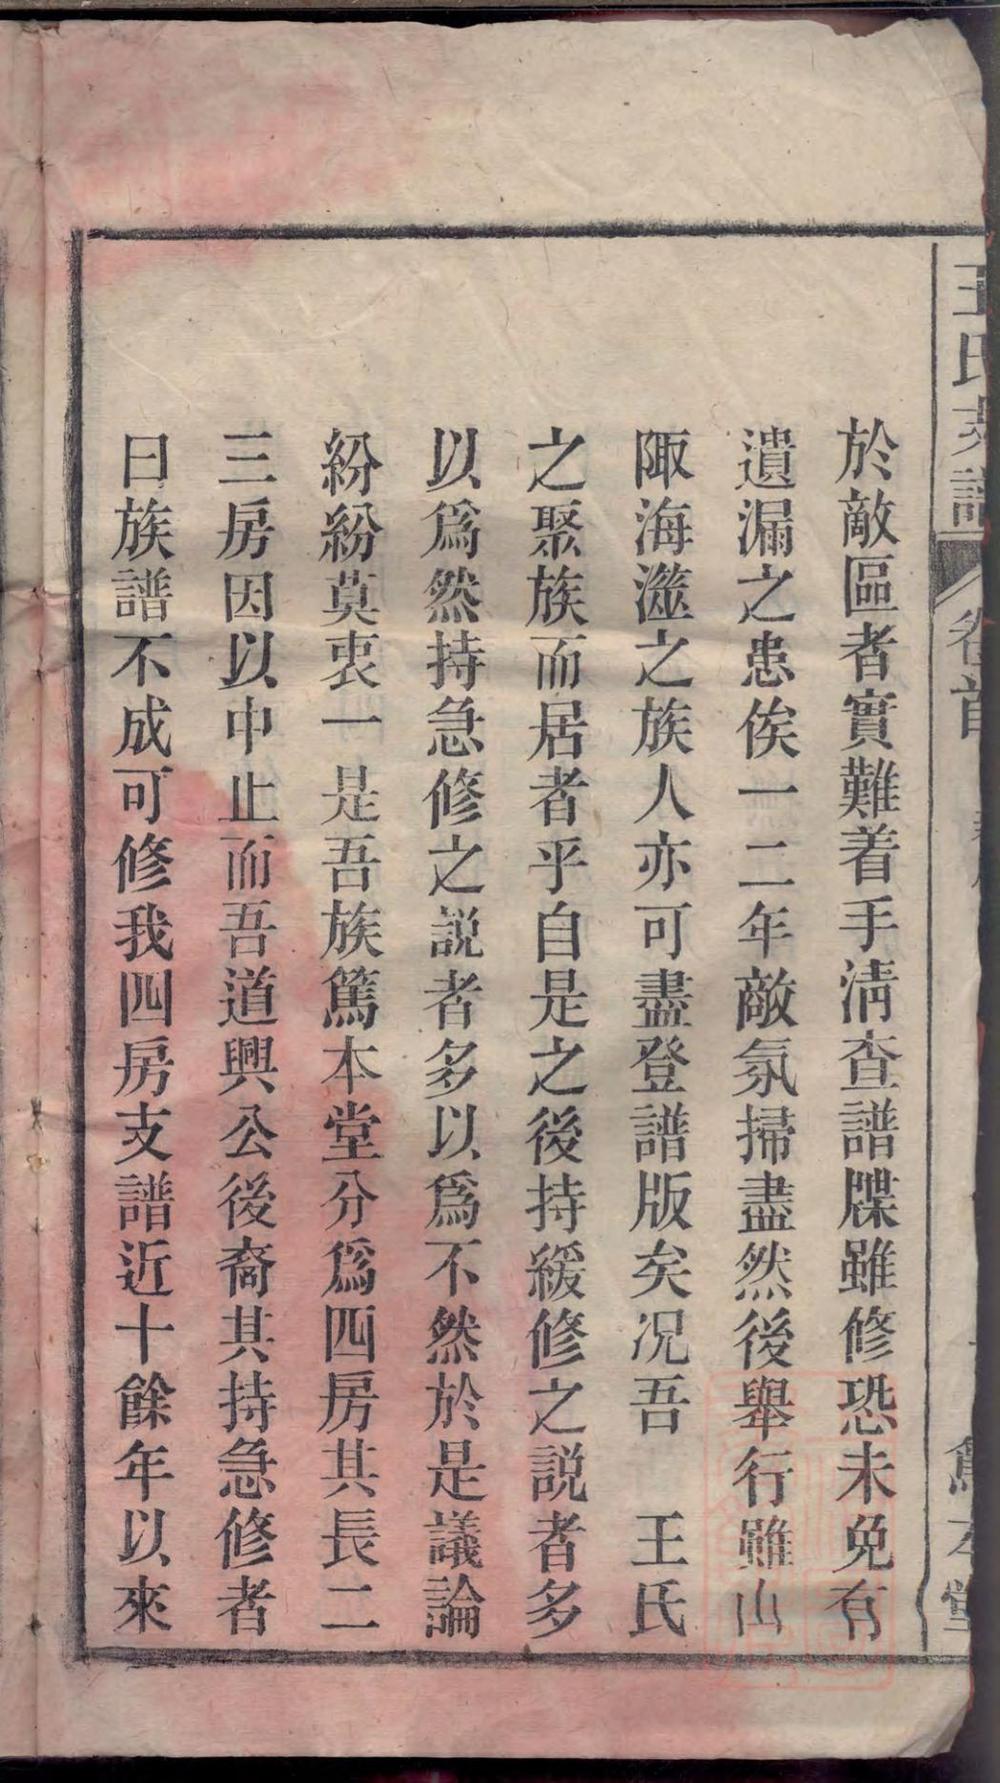 王氏宗譜 卷首 篤本堂
於敵區者實難着手淸查譜牒雖修恐未免有
遺漏之患俟一二年敵氛掃盡然後舉行雖山
陬海澨之族人亦可盡登譜版矣况吾 王氏
之聚族而居者乎自是之後持緩修之説者多
以爲然持急修之説者多以爲不然於是議論
紛紛莫衷一是吾族篤本堂分爲四房其長二
三房因以中止而吾道興公後裔其持急修者
曰族譜不成可修我四房支譜近十餘年以來